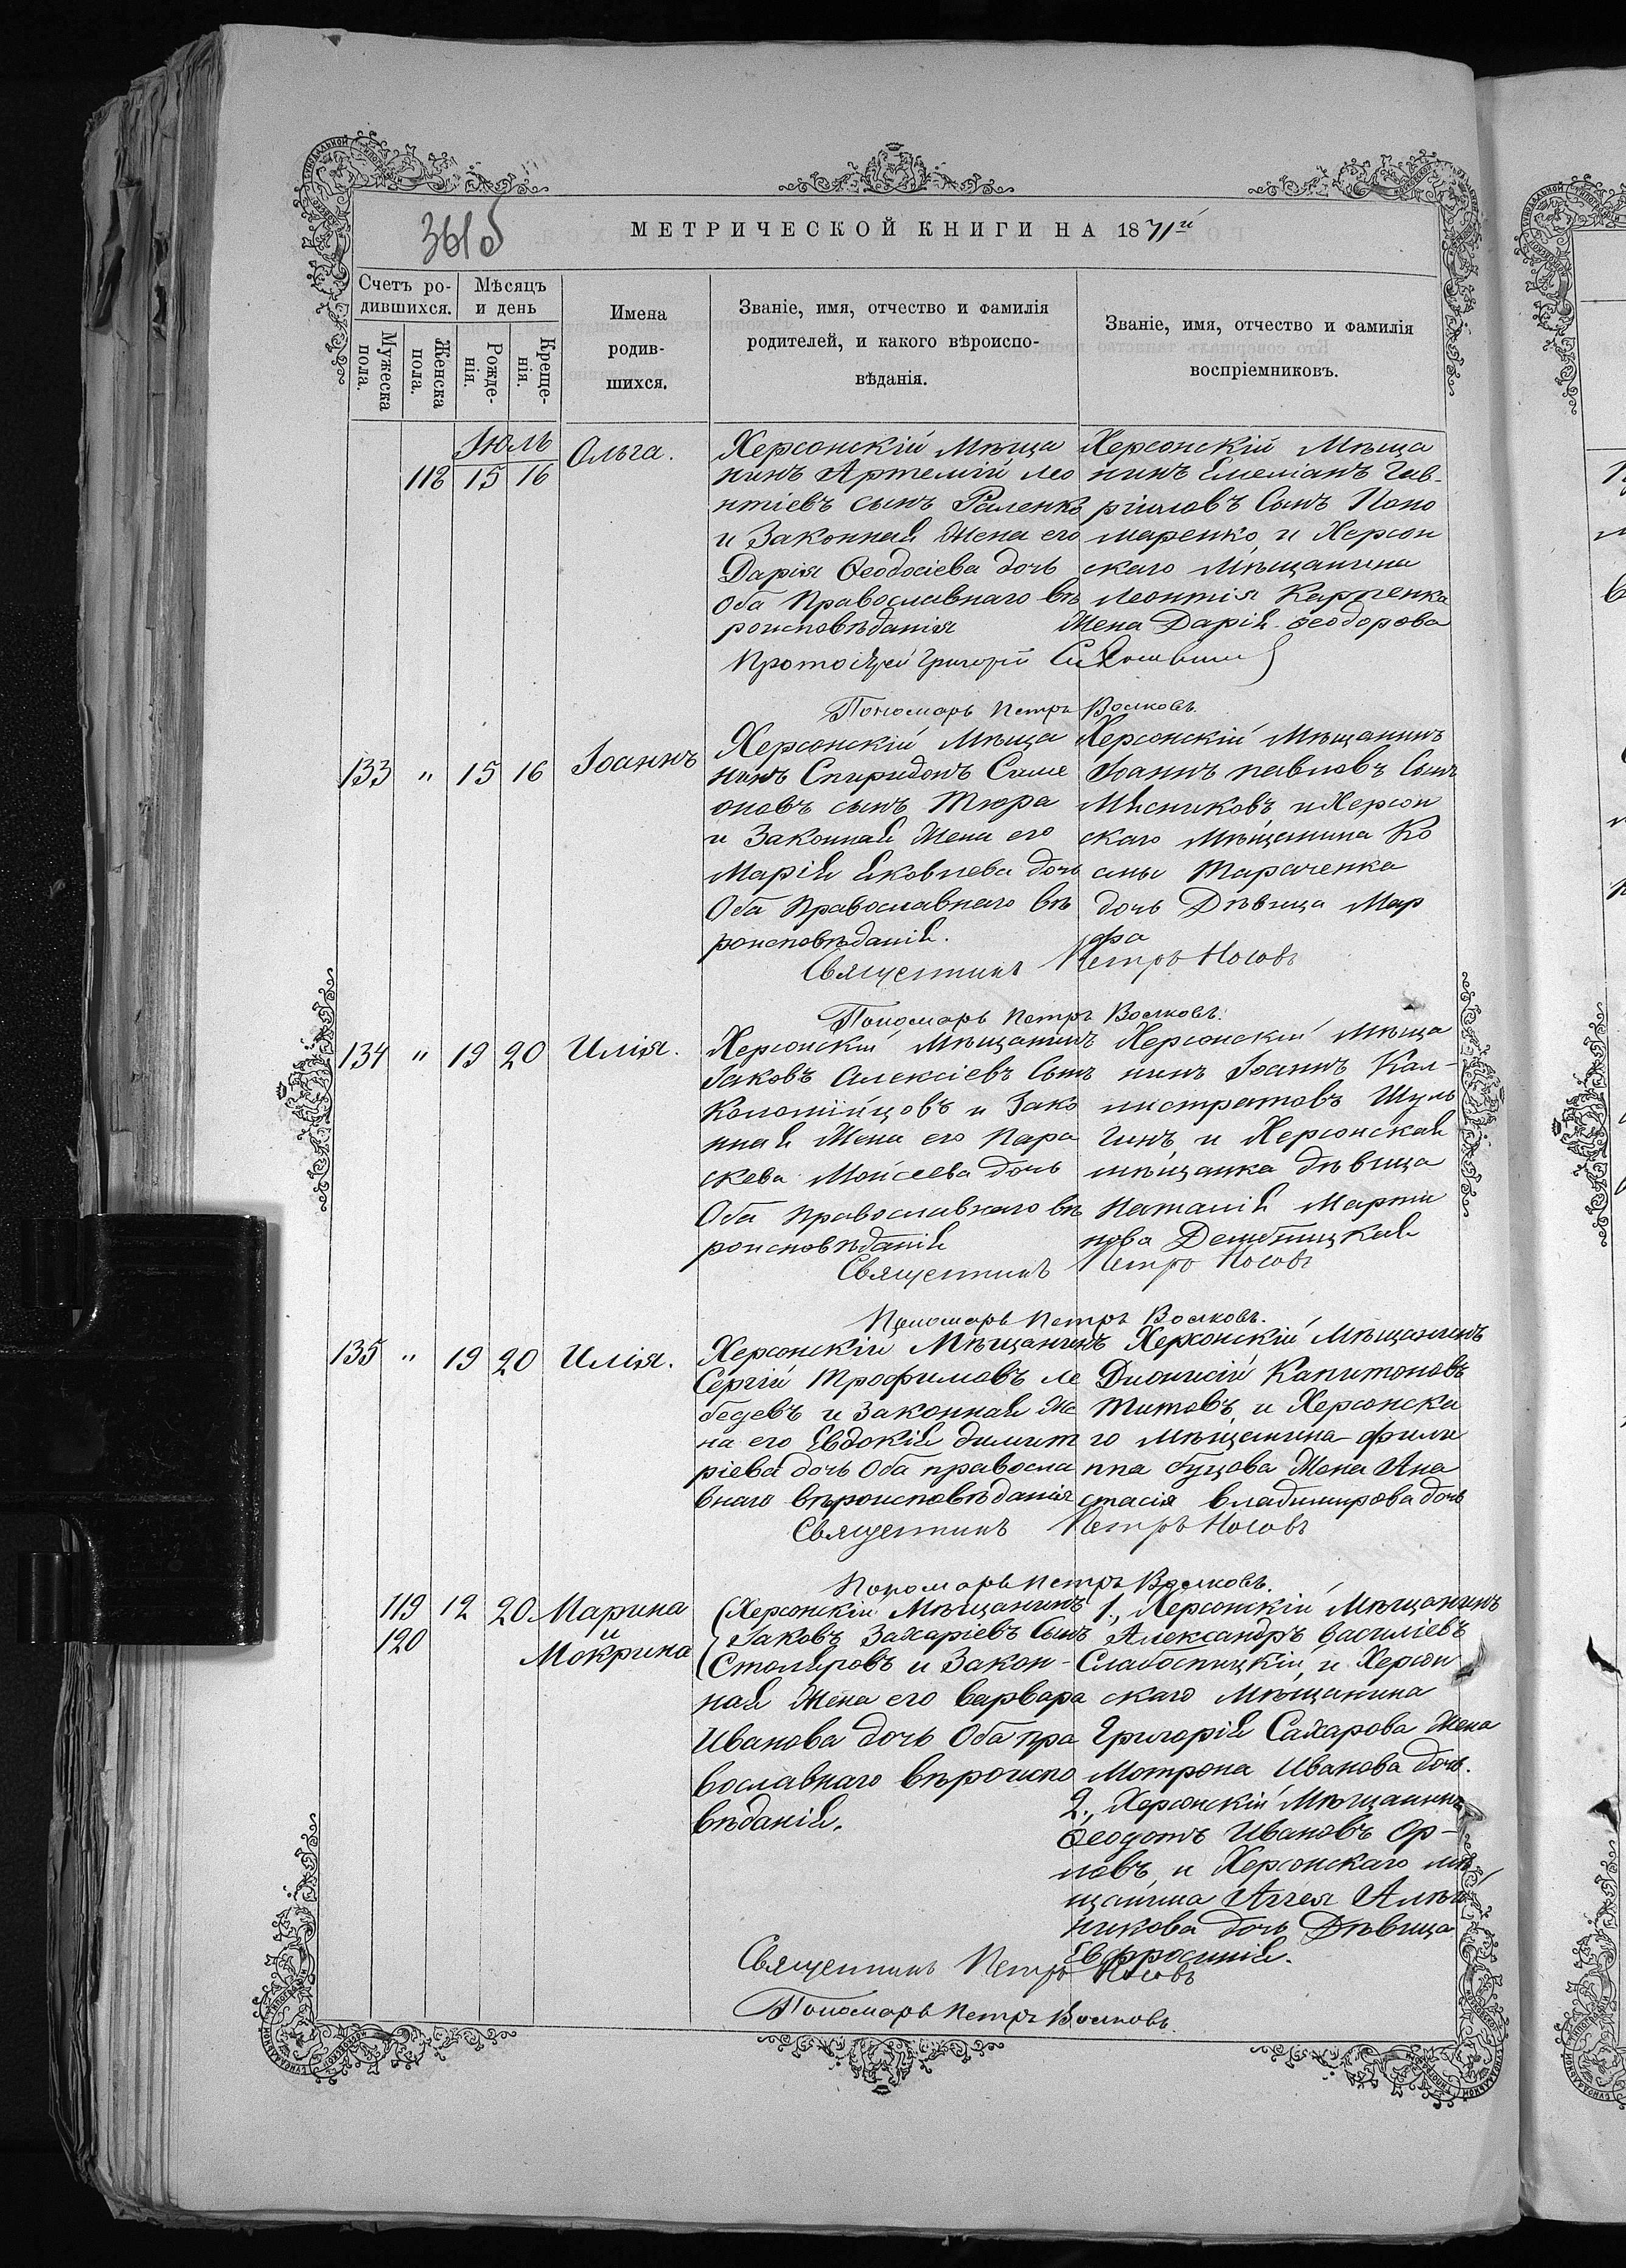 361б
МЕТРИЧЕСКОЙ КНИГИ НА 1871й
Счетъ ро-
дившихся.
Мужеска
пола.
Женска
пола.
Мѣсяцъ
и день
Рожде-
нія.
Креще-
нія.
Имена
родив-
шихся.
Званіе, имя, отчество и фамилія
родителей, и какого вѣроиспо-
вѣданія.
Званіе, имя, отчество и фамилія
воспріемниковъ.
Іюль
118 15 16 Ольга.
Херсонскій Мѣща
нинъ Артемій лео
нтіевъ сынъ
и Законная Жена его
Дарія Ѳеодосіева дочь
Оба Православнаго вѣ
роисповѣданія
Херсонскій Мѣща
нинъ Емеліанъ Гав-
ріиловъ Сынъ Поно
маренко и Херсон
скаго Мѣщанина
Леонтія Карпенка
Жена Дарія Ѳеодорова
Протоіерей Григорій
Пономарь Петръ Волковъ.
133 " 15 16 Іоаннъ
Херсонскій Мѣща
нинъ Спиридонъ Симе
оновъ сынъ Тюра
и Законная Жена его
Марія Яковлева дочь
Оба Православнаго вѣ
роисповѣданія.
Херсонскій Мѣщанинъ
Іоаннъ павловъ Сынъ
Мясниковъ и Херсон
скаго Мѣщанина Ко
смы Тараненка
дочь Дѣвица Мар
фа
Священникъ Петръ Носовъ
Пономарь Петръ Волковъ.
134 " 19 20 Илія.
Херсонскій Мѣщанинъ
Іаковъ Алексіевъ Сынъ
Коломійцовъ и Зако
нная Жена его Пара
скева Моисеева дочь
Оба Православнаго вѣ
роисповѣданія
Херсонскій Мѣща
нинъ Іоаннъ Кал-
листратовъ Шуль
гинъ и Херсонская
мѣщанка дѣвица
Наталія Марти
нова
Священникъ Петръ Носовъ
Пономарь Петръ Волковъ.
135 " 19 20 Илія.
Херсонскій Мѣщанинъ
Сергій Трофимовъ ле
бедевъ и Законная Же
на его Евдокія димит
ріева дочь Оба правосла
внаго вѣроисповѣданія
Херсонскій Мѣщанинъ
Дионисій Капитоновъ
Титовъ и Херсонска
го Мѣщанина фили
ппа буцова Жена Ана
стасія владимирова дочь
Священникъ Петръ Носовъ
Пономарь Петръ Волковъ.
119 12 20 Марина
120 и
Мокрина
Херсонскій Мѣщанинъ
Іаковъ Захаріевъ Сынъ
Столяровъ и Закон-
ная Жена его варвара
Иванова дочь Оба пра
вославнаго вѣроиспо
вѣданія.
1., Херсонскій Мѣщанинъ
Александръ василіевъ
Слабоспицкій и Херсон
скаго Мѣщанина
Григорія Сахарова Жена
Мотрона Иванова дочь.
2., Херсонскій Мѣщанинъ
Ѳеодотъ Ивановъ Ор-
ловъ и Херсонскаго мѣ
щанина Аггея
никова дочь Дѣвица
Евфросинія.
Священникъ Петръ Носовъ
Пономарь Петръ Волковъ.